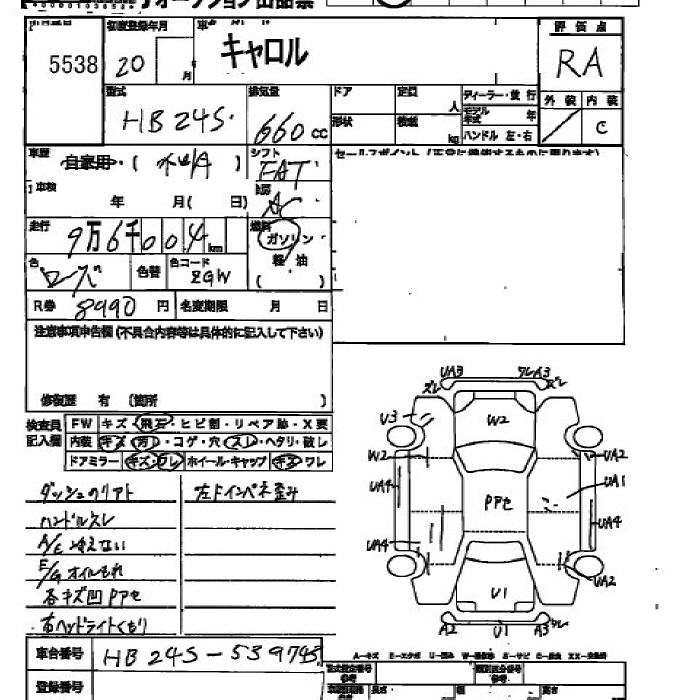 オークション出品票
初度登録年月
評価点
5538
20
月
キャロル
RA
型式
HB24S
排気量
660 CC
ドア
定員
人
ディーラー・並行
モデル年式
年
外装 内装
C
形状
積載
kg
ハンドル 左・右
車歴
自家用・( )
シフト
FAT
車検
年 月( 日)
AC
走行
9万6千004 km
燃料
ガソリン
軽油
( )
色
色替
色コード
ZGW
R券
8990 円
名変期限 月 日
注意事項申告欄(不具合内容等は具体的に記入して下さい)
修復歴 有 〔箇所 〕
検査員
記入欄
FW キズ・飛石・ヒビ割・リペア跡・X要
内装 キズ・汚レ・コゲ・穴・スレ・ヘタリ・破レ
ドアミラー キズ・ワレ ホイール・キャップ キズ・ワレ
ダッシュのリアト
左Fインパネ歪み
ハンドルスレ
A/C冷えない
E/Gオイルもれ
各キズ凹Pアセ
右ヘッドライトくもり
UA3
ワレA3
ズレ
ズレ
U3
W2
W2
UA2
UA4
UA1
Pアセ
UA4
UA4
UA2
U1
A2
U1
A3ワレ
車台番号
HB24S-539745
登録番号